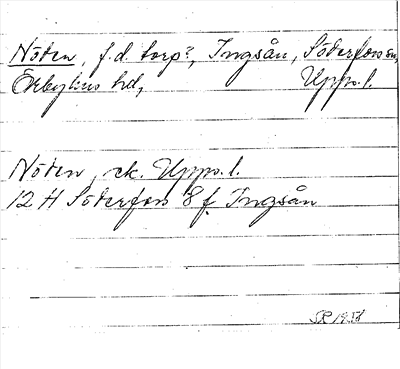 Nöten, f.d. torp?, Ingsån, Söderfors sn,
Örbyhus hd, Upps. l.
Nöten, ek. Upps. l.
12 H Söderfors 8 f Ingsån